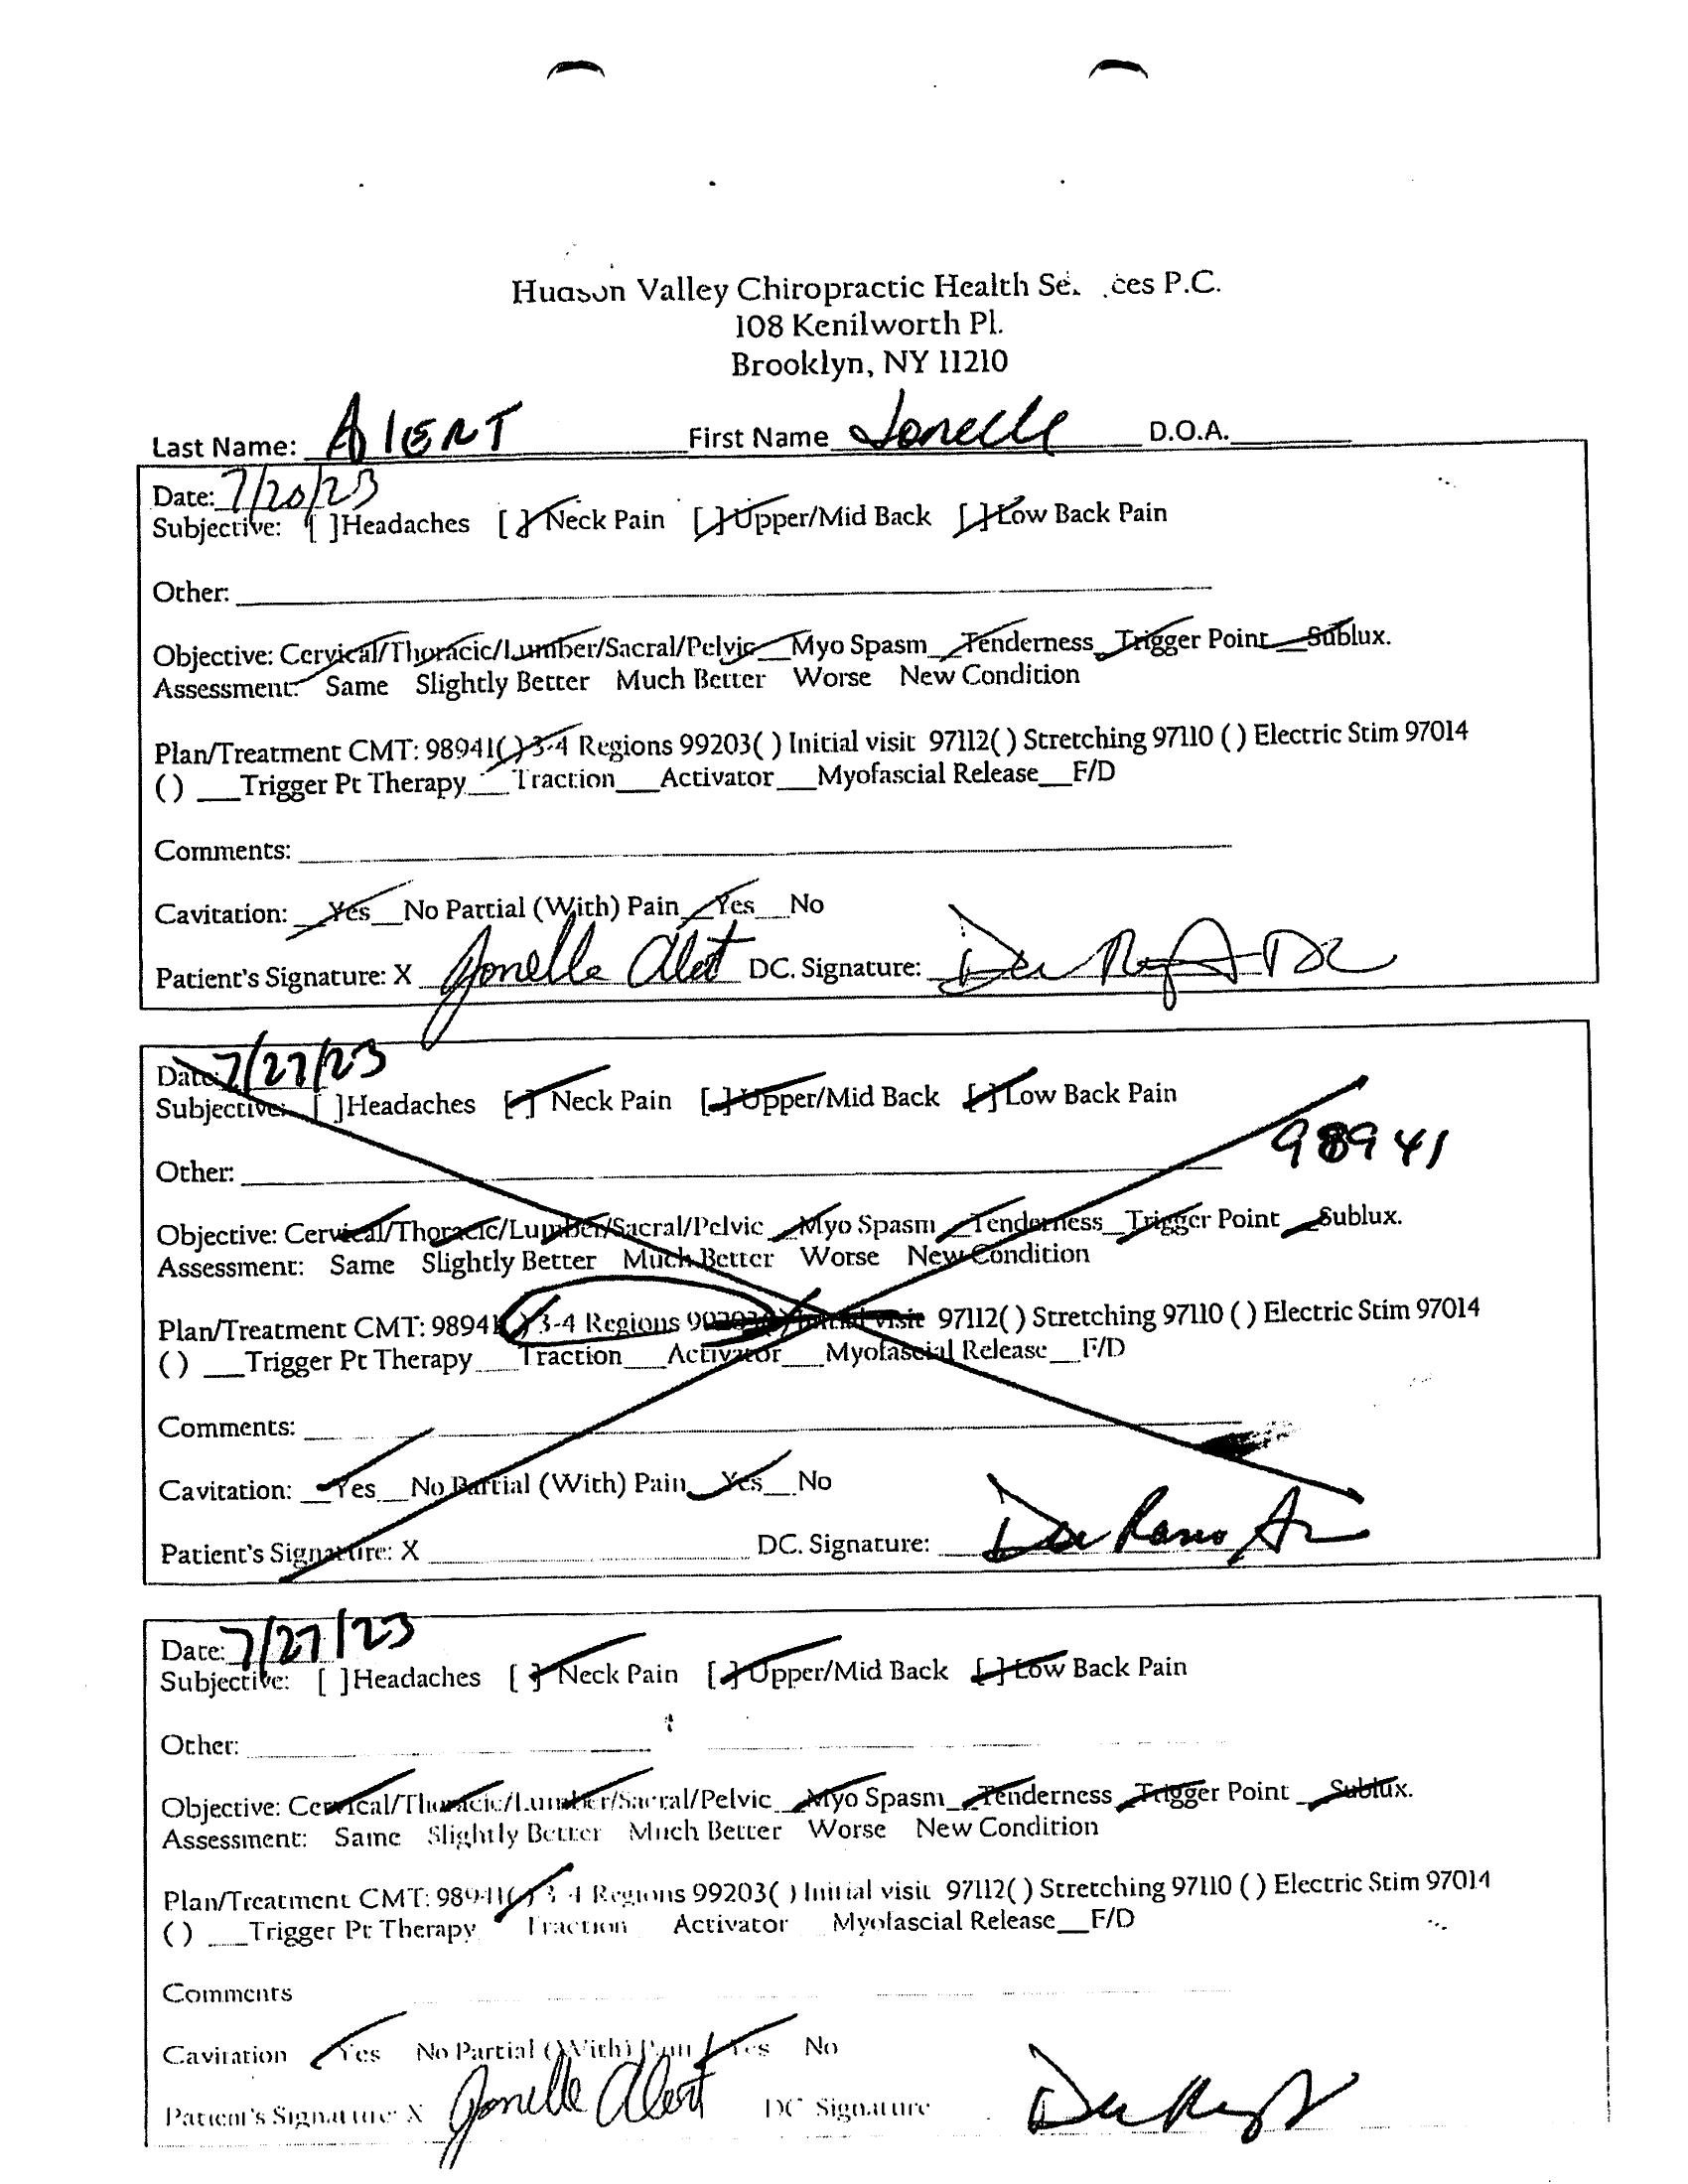 Hudson Valley Chiropractic Health Se. .ces P.C.
108 Kenilworth Pl.
Brooklyn, NY 11210
Last Name: Alert First Name Jonelle D.O.A.
Date: 7/20/23
Subjective: [ ]Headaches [ ] Neck Pain [ ] Upper/Mid Back [ ] Low Back Pain
Other:
Objective: Cervical/Thoracic/Lumber/Sacral/Pelvic__Myo Spasm__Tenderness__Trigger Point__Sublux.
Assessment: Same Slightly Better Much Better Worse New Condition
Plan/Treatment CMT: 98941( ) 3-4 Regions 99203( ) Initial visit 97112( ) Stretching 97110 ( ) Electric Stim 97014
( ) __Trigger Pt Therapy__Traction__Activator__Myofascial Release__F/D
Comments:
Cavitation: __Yes__No Partial (With) Pain__Yes__No
Patient's Signature: X Jonelle Alert DC. Signature:
Date: 7/27/23
Subjective: [ ]Headaches [ ] Neck Pain [ ] Upper/Mid Back [ ] Low Back Pain
98941
Other:
Objective: Cervical/Thoracic/Lumber/Sacral/Pelvic __Myo Spasm__Tenderness__Trigger Point __Sublux.
Assessment: Same Slightly Better Much Better Worse New Condition
Plan/Treatment CMT: 98941( ) 3-4 Regions 99203( ) Initial visit 97112( ) Stretching 97110 ( ) Electric Stim 97014
( ) __Trigger Pt Therapy__Traction__Activator__Myofascial Release__F/D
Comments:
Cavitation: __Yes__No Partial (With) Pain__Yes__No
Patient's Signature: X DC. Signature:
Date: 7/27/23
Subjective: [ ]Headaches [ ] Neck Pain [ ] Upper/Mid Back [ ] Low Back Pain
Other:
Objective: Cervical/Thoracic/Lumber/Sacral/Pelvic __Myo Spasm__Tenderness__Trigger Point __Sublux.
Assessment: Same Slightly Better Much Better Worse New Condition
Plan/Treatment CMT: 98941( ) 3-4 Regions 99203( ) Initial visit 97112( ) Stretching 97110 ( ) Electric Stim 97014
( ) __Trigger Pt Therapy Traction Activator Myofascial Release__F/D
Comments
Cavitation Yes No Partial (With) Pain Yes No
Patient's Signature X Jonelle Alert DC Signature